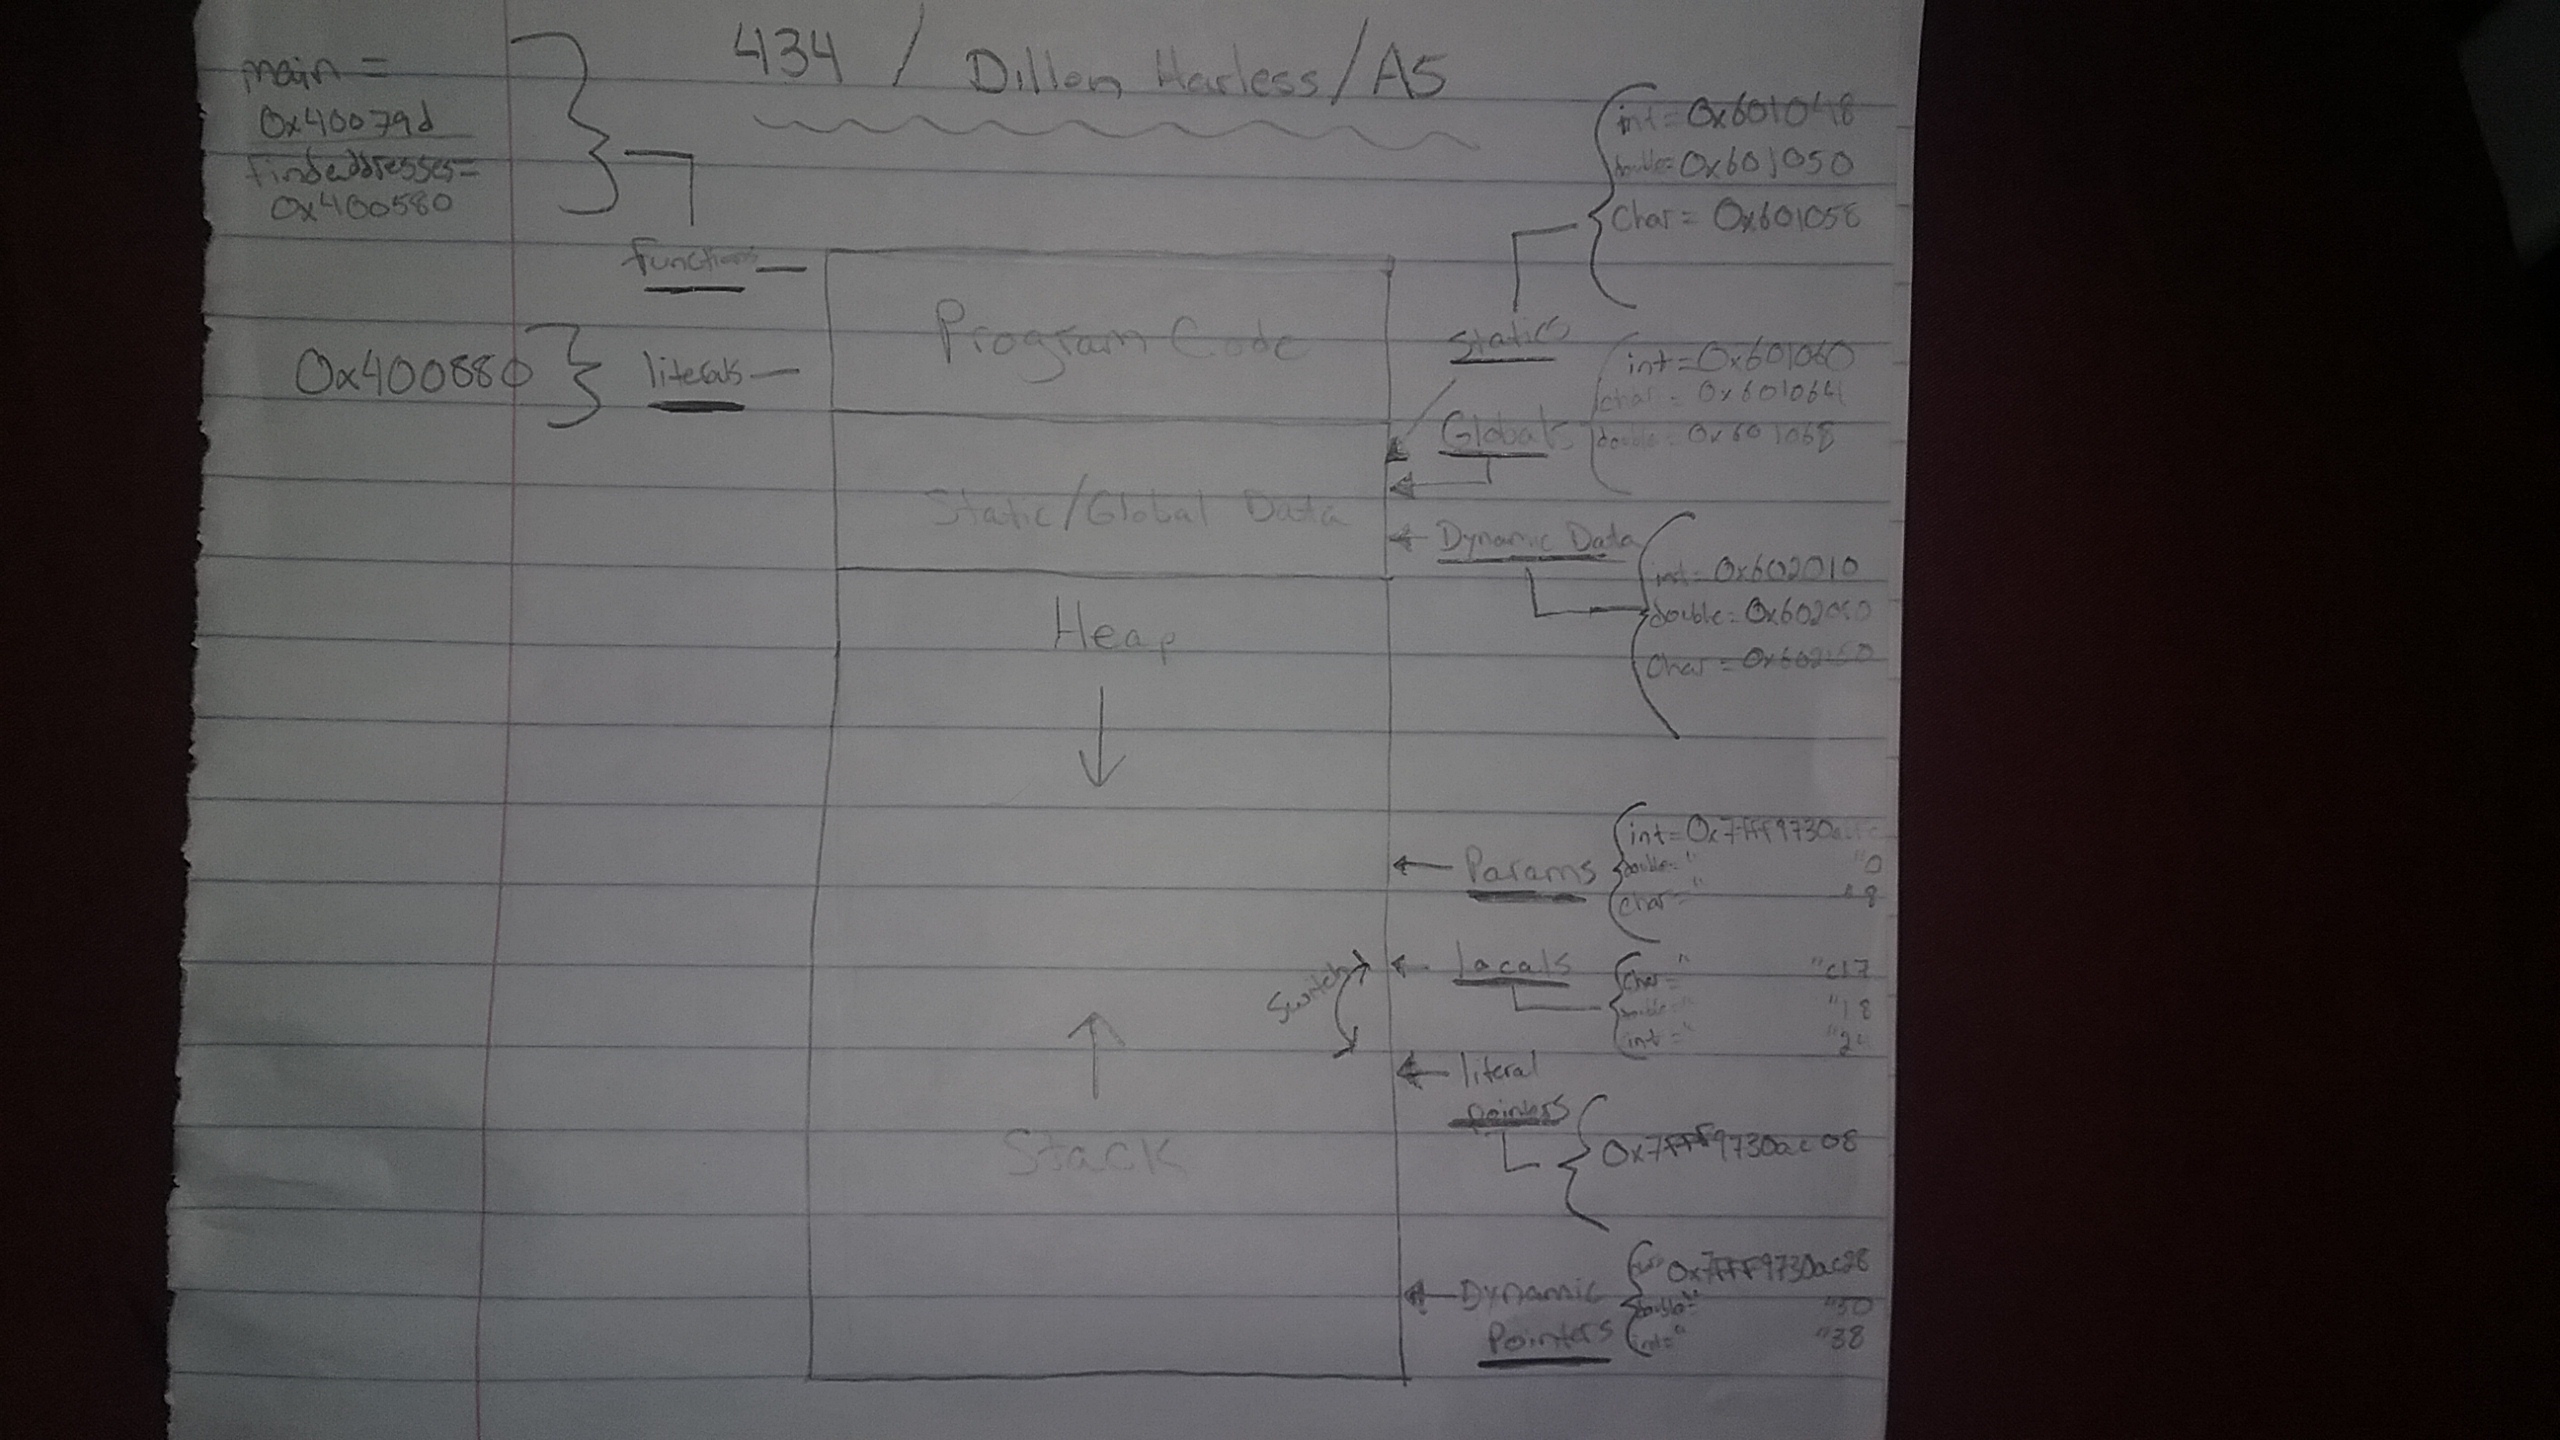 434 / Dillon Harless / A5
main =
0x40079d
findaddresses =
0x400580
functions
0x400880
literals
Program Code
Static/Global Data
Heap
Stack
switch
Statics
int = 0x601048
double = 0x601050
char = 0x601058
Globals
int = 0x601060
char = 0x601064
double = 0x601068
Dynamic Data
int = 0x602010
double = 0x602030
char =
Params
int =
double = " "0
char =
Locals
char = "
double = " "18
int = "
literal
pointers
0x7fff9730ac08
Dynamic
Pointers
double = " "30
int = " "38